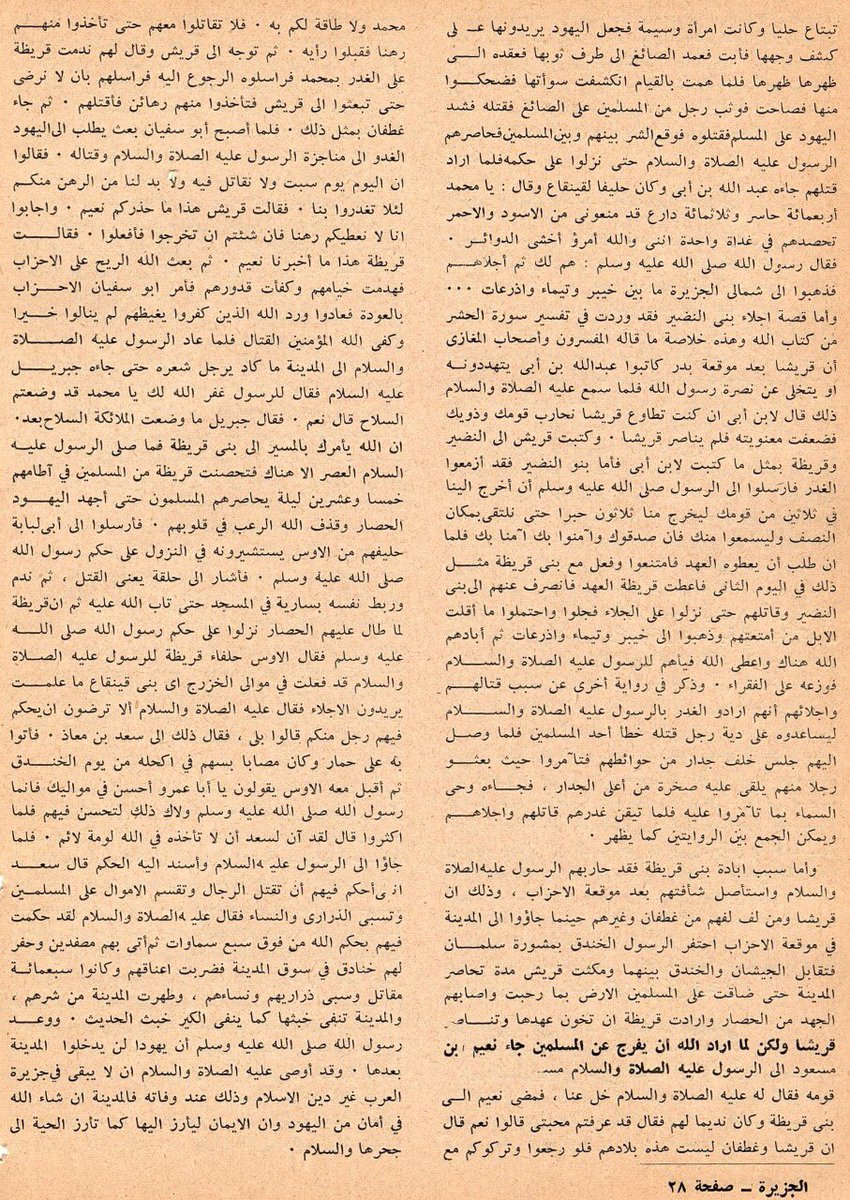 تبتاع حليا وكانت امرأة وسيمة فجعل اليهود يريدونها على
كشف وجهها فأبت فعمد الصائغ الى طرف ثوبها فعقده الى
ظهرها ظهرها فلما همت بالقيام انكشفت سوأتها فضحكوا
منها فصاحت فوثب رجل من المسلمين على الصائغ فقتله فشد
اليهود على المسلم فقتلوه فوقع الشر بينهم وبين المسلمين فحاصرهم
الرسول عليه الصلاة والسلام حتى نزلوا على حكمه فلما اراد
قتلهم جاءه عبد الله بن أبى وكان حليفا لقينقاع وقال : يا محمد
أربعمائة حاسر وثلاثمائة دارع قد منعونى من الاسود والاحمر
تحصدهم في غداة واحدة اننى والله أمرؤ أخشى الدوائر ٠
فقال رسول الله صلى الله عليه وسلم : هم لك ثم أجلاهم
فذهبوا الى شمالى الجزيرة ما بين خيبر وتيماء واذرعات ٠٠٠
وأما قصة اجلاء بنى النضير فقد وردت في تفسير سورة الحشر
من كتاب الله وهذه خلاصة ما قاله المفسرون وأصحاب المغازى
أن قريشا بعد موقعة بدر كاتبوا عبدالله بن أبى يتهددونه
او يتخلى عن نصرة رسول الله فلما سمع عليه الصلاة والسلام
ذلك قال لابن أبى ان كنت تطاوع قريشا نحارب قومك وذويك
فضعفت معنويته فلم يناصر قريشا ٠ وكتبت قريش الى النضير
وقريظة بمثل ما كتبت لابن أبى فأما بنو النضير فقد أزمعوا
الغدر فارسلوا الى الرسول صلى الله عليه وسلم أن أخرج الينا
في ثلاثين من قومك ليخرج منا ثلاثون حبرا حتى نلتقى بمكان
النصف وليسمعوا منك فان صدقوك وآمنوا بك آمنا بك فلما
ان طلب أن يعطوه العهد فامتنعوا وفعل مع بنى قريظة مثل
ذلك في اليوم الثانى فاعطت قريظة العهد فانصرف عنهم الى بنى
النضير وقاتلهم حتى نزلوا على الجلاء فجلوا واحتملوا ما أقلت
الابل من أمتعتهم وذهبوا الى خيبر وتيماء واذرعات ثم أبادهم
الله هناك واعطى الله فيأهم للرسول عليه الصلاة والسلام
فوزعه على الفقراء ٠ وذكر في رواية أخرى عن سبب قتالهم
واجلائهم أنهم ارادو الغدر بالرسول عليه الصلاة والسلام
ليساعدوه على دية رجل قتله خطأ أحد المسلمين فلما وصل
اليهم جلس خلف جدار من حوائطهم فتآمروا حيث بعثو
رجلا منهم يلقى عليه صخرة من أعلى الجدار ، فجاءه وحى
السماء بما تآمروا عليه فلما تيقن غدرهم قاتلهم واجلاهم
ويمكن الجمع بين الروايتين كما يظهر ٠
وأما سبب ابادة بنى قريظة فقد حاربهم الرسول عليه الصلاة
والسلام واستأصل شأفتهم بعد موقعة الاحزاب ، وذلك ان
قريشا ومن لف لفهم من غطفان وغيرهم حينما جاؤوا الى المدينة
في موقعة الاحزاب احتفر الرسول الخندق بمشورة سلمان
فتقابل الجيشان والخندق بينهما ومكثت قريش مدة تحاصر
المدينة حتى ضاقت على المسلمين الارض بما رحبت واصابهم
الجهد من الحصار وارادت قريظة ان تخون عهدها وتناصر
قريشا ولكن لما اراد الله أن يفرج عن المسلمين جاء نعيم بن
مسعود الى الرسول عليه الصلاة والسلام
قومه فقال له عليه الصلاة والسلام خل عنا ، فمضى نعيم الى
بنى قريظة وكان نديما لهم فقال قد عرفتم محبتى قالوا نعم قال
ان قريشا وغطفان ليست هذه بلادهم فلو رجعوا وتركوكم مع
محمد ولا طاقة لكم به ٠ فلا تقاتلوا معهم حتى تأخذوا منهم
رهنا فقبلوا رأيه ٠ ثم توجه الى قريش وقال لهم ندمت قريظة
على الغدر بمحمد فراسلوه الرجوع اليه فراسلهم بان لا نرضى
حتى تبعثوا الى قريش فتأخذوا منهم رهائن فأقتلهم ٠ ثم جاء
غطفان بمثل ذلك ٠ فلما أصبح أبو سفيان بعث يطلب الى اليهود
الغدو الى مناجزة الرسول عليه الصلاة والسلام وقتاله ٠ فقالوا
ان اليوم يوم سبت ولا نقاتل فيه ولا بد لنا من الرهن منكم
لئلا تغدروا بنا ٠ فقالت قريش هذا ما حذركم نعيم ٠ واجابوا
انا لا نعطيكم رهنا فان شئتم ان تخرجوا فأفعلوا ٠ فقالت
قريظة هذا ما أخبرنا نعيم ٠ ثم بعث الله الريح على الاحزاب
فهدمت خيامهم وكفأت قدورهم فأمر ابو سفيان الاحزاب
بالعودة فعادوا ورد الله الذين كفروا بغيظهم لم ينالوا خيرا
وكفى الله المؤمنين القتال فلما عاد الرسول عليه الصلاة
والسلام الى المدينة ما كاد يرجل شعره حتى جاءه جبريل
عليه السلام فقال للرسول غفر الله لك يا محمد قد وضعتم
السلاح قال نعم ٠ فقال جبريل ما وضعت الملائكة السلاح بعد٠
ان الله يأمرك بالمسير الى بنى قريظة فما صلى الرسول عليه
السلام العصر الا هناك فتحصنت قريظة من المسلمين في آطامهم
خمسا وعشرين ليلة يحاصرهم المسلمون حتى أجهد اليهود
الحصار وقذف الله الرعب في قلوبهم ٠ فأرسلوا الى أبى لبابة
حليفهم من الاوس يستشيرونه في النزول على حكم رسول الله
صلى الله عليه وسلم ٠ فأشار الى حلقة يعنى القتل ، ثم ندم
وربط نفسه بسارية في المسجد حتى تاب الله عليه ثم ان قريظة
لما طال عليهم الحصار نزلوا على حكم رسول الله صلى الله
عليه وسلم فقال الاوس حلفاء قريظة للرسول عليه الصلاة
والسلام قد فعلت في موالى الخزرج اى بنى قينقاع ما علمت
يريدون الاجلاء فقال عليه الصلاة والسلام ألا ترضون ان يحكم
فيهم رجل منكم قالوا بلى ، فقال ذلك الى سعد بن معاذ ٠ فأتوا
به على حمار وكان مصابا بسهم في اكحله من يوم الخندق
ثم أقبل معه الاوس يقولون يا أبا عمرو أحسن في مواليك فانما
رسول الله صلى الله عليه وسلم ولاك ذلك لتحسن فيهم فلما
اكثروا قال لقد آن لسعد أن لا تأخذه في الله لومة لائم ٠ فلما
جاؤا الى الرسول عليه السلام وأسند اليه الحكم قال سعد
انى أحكم فيهم أن تقتل الرجال وتقسم الاموال على المسلمين
وتسبى الذرارى والنساء فقال عليه الصلاة والسلام لقد حكمت
فيهم بحكم الله من فوق سبع سماوات ثم أتى بهم مصفدين وحفر
لهم خنادق في سوق المدينة فضربت اعناقهم وكانوا سبعمائة
مقاتل وسبى ذراريهم ونساءهم ، وطهرت المدينة من شرهم ،
والمدينة تنفى خبثها كما ينفى الكير خبث الحديث ٠ ووعد
رسول الله صلى الله عليه وسلم أن يهودا لن يدخلوا المدينة
بعدها ٠ وقد أوصى عليه الصلاة والسلام ان لا يبقى في جزيرة
العرب غير دين الاسلام وذلك عند وفاته فالمدينة ان شاء الله
في أمان من اليهود وان الايمان ليأرز اليها كما تأرز الحية الى
جحرها والسلام ٠
الجزيرة ــ صفحة ٢٨